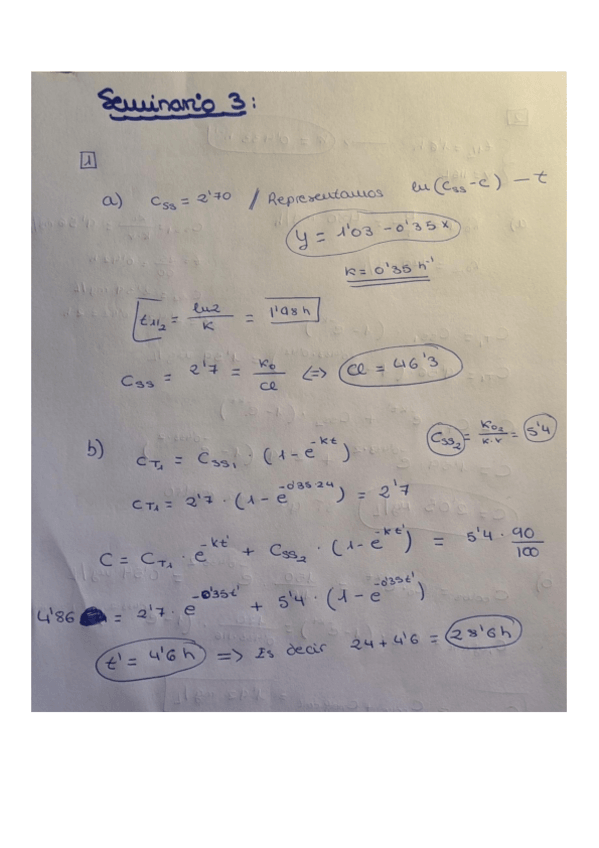 Seminario 3:
1
a) Css = 2'70 / Representamos ln(Css-C) — t
y = 1'03 - 0'35x
K = 0'35 h⁻¹
t1/2 = ln2/K = 1'98h
Css = 2'7 = K0/Cl <=> Cl = 46'3
b) CT1 = Css1 · (1-e^-kt)
Css2 = K02/K·V = 5'4
CT1 = 2'7 · (1-e^-0'35·24) = 2'7
C = CT1 · e^-kt' + Css2 · (1-e^-kt') = 5'4 · 90/100
4'86 = 2'7 · e^-0'35t' + 5'4 · (1-e^-0'35t')
t' = 4'6 h => Es decir 24+4'6 = 28'6h